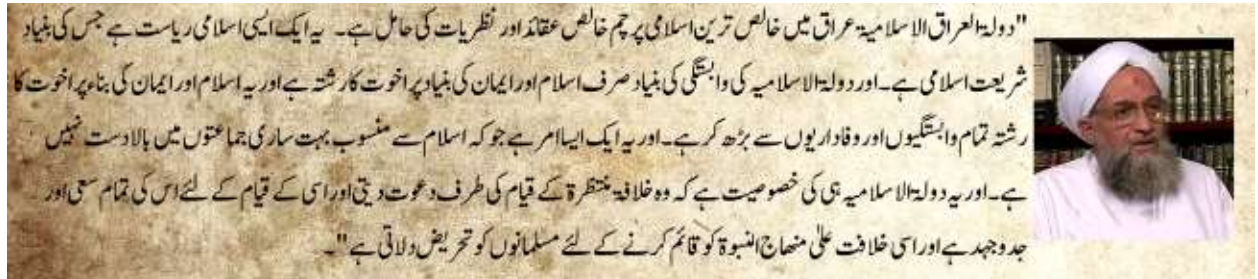 "دولۃ العراق الاسلامیۃ عراق میں خالص ترین اسلامی پرچم خالص عقائد اور نظریات کی حامل ہے۔ یہ ایک ایسی اسلامی ریاست ہے جس کی بنیاد
شریعت اسلامی ہے۔ اور دولۃ الاسلامیہ کی وابستگی کی بنیاد صرف اسلام اور ایمان کی بنیاد پر اخوت کا رشتہ ہے اور یہ اسلام اور ایمان کی بناء پر اخوت کا
رشتہ تمام وابستگیوں اور وفاداریوں سے بڑھ کر ہے۔ اور یہ ایک ایسا امر ہے جو کہ اسلام سے منسوب بہت ساری جماعتوں میں بالادست نہیں
ہے۔ اور یہ دولۃ الاسلامیہ ہی کی خصوصیت ہے کہ وہ خلافۃ منتظرۃ کے قیام کی طرف دعوت دیتی اور اسی کے قیام کے لئے اس کی تمام سعی اور
جدوجہد ہے اور اسی خلافت علیٰ منھاج النبوۃ کو قائم کرنے کے لئے مسلمانوں کو تحریض دلاتی ہے"۔